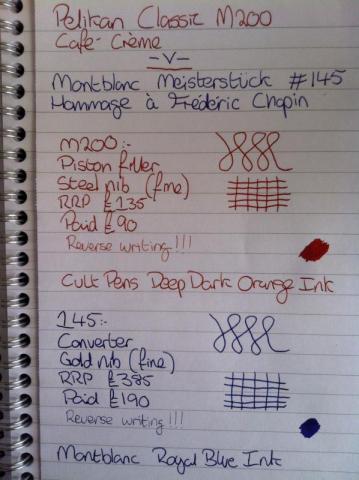 Pelikan Classic M200
Café-Crème
-V-
Montblanc Meisterstück #145
Hommage à Frédéric Chopin
M200:-
Piston filler
Steel nib (fine)
RRP £135
Paid £90
Reverse writing!!!
Cult Pens Deep Dark Orange Ink
145:-
Converter
Gold nib (fine)
RRP £385
Paid £190
Reverse writing!!!
Montblanc Royal Blue Ink